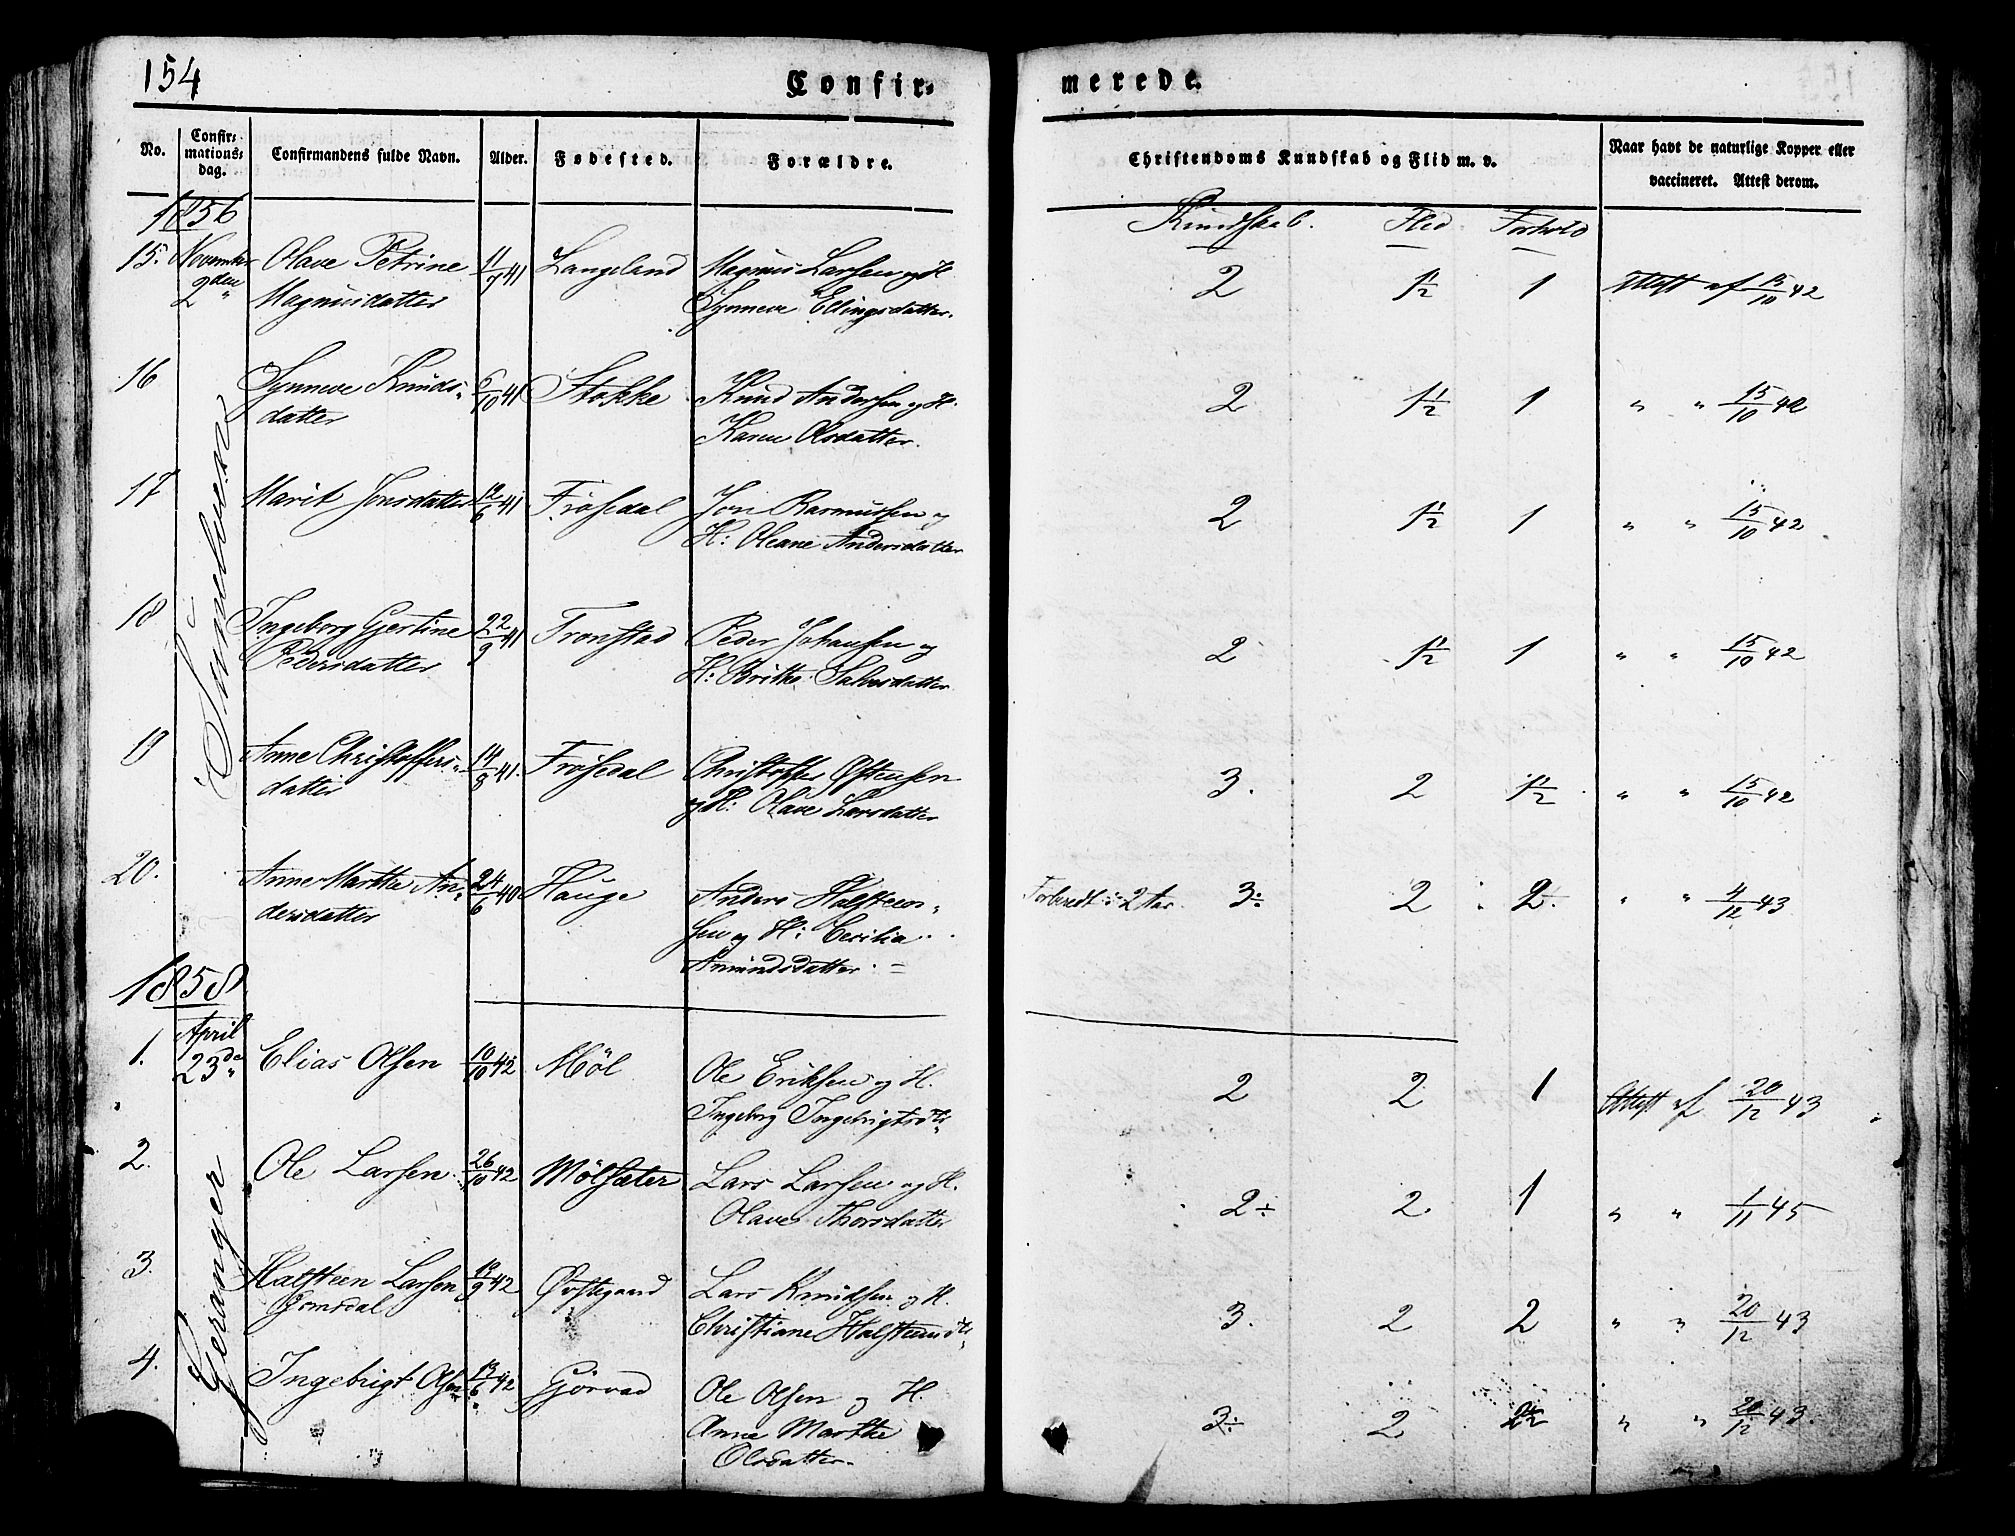 154
Confir=
merede.
No.
Confir=
mations=
dag.
Confirmandens fulde Navn.
Alder.
Fødested.
Forældre.
Christendoms Kundskab og Flid m. v.
Naar havt de naturlige Kopper eller
vaccineret. Attest derom.
1856
Kundskab. Flid Forhold
15. November Olave Petrine 11/9 41 Langeland Magnus Larsen og H.
2den Magnusdatter Synneve Ellingsdatter.
2 1½ 1 Attest af 15/10 42
Sunelven
16 Synneve Knuds= 6/10 41 Stokke Knud Andersen og H.
datter Karen Olsdatter.
2 1½ 1 " " 15/10 42
17 Marit Jonsdatter 12/6 41 Frøsedal Jon Rasmussen og
H: Oleane Andersdatter
2 1½ 1 " " 15/10 42
18 Ingeborg Gjertine 22/9 41 Tronstad Peder Johansen og
Pedersdatter H: Brithe Salvesdatter
2 1½ 1 " " 15/10 42
19 Anne Christoffers= 14/8 41. Frøsedal Christoffer Østensen
datter og H: Olave Larsdatter
3. 2 1½ " " 15/10 42
20. Anne Marthe An= 24/6 40 Hauge Anders Halsteen=
dersdatter sen og H: Cecilia
Amundsdatter. =
Forberedt i 2 Aar. 3÷ 2 2. " " 4/12 43
1858
1. April Elias Olsen 10/10 42 Møl Ole Eriksen og H.
23de Ingeborg Ingebrigtsdtr
2 2 1 Attest af 20/12 43
Geranger
2. Ole Larsen 26/10 42 Mølsæter Lars Larsen og H.
Olave Thorsdatter
2÷ 2. 1 " " 1/11 45
3. Halsteen Larsen 19/9 42 Østegaard Lars Knudsen og H.
Christiane Halsteensdtr
3. 2 2 " " 20/12 43
4. Ingebrigt Olsen 13/6 42 Gjørvad Ole Olsen og H.
Anne Marthe
Olsdatter.
3÷ 2 2½ " " 20/12 43.